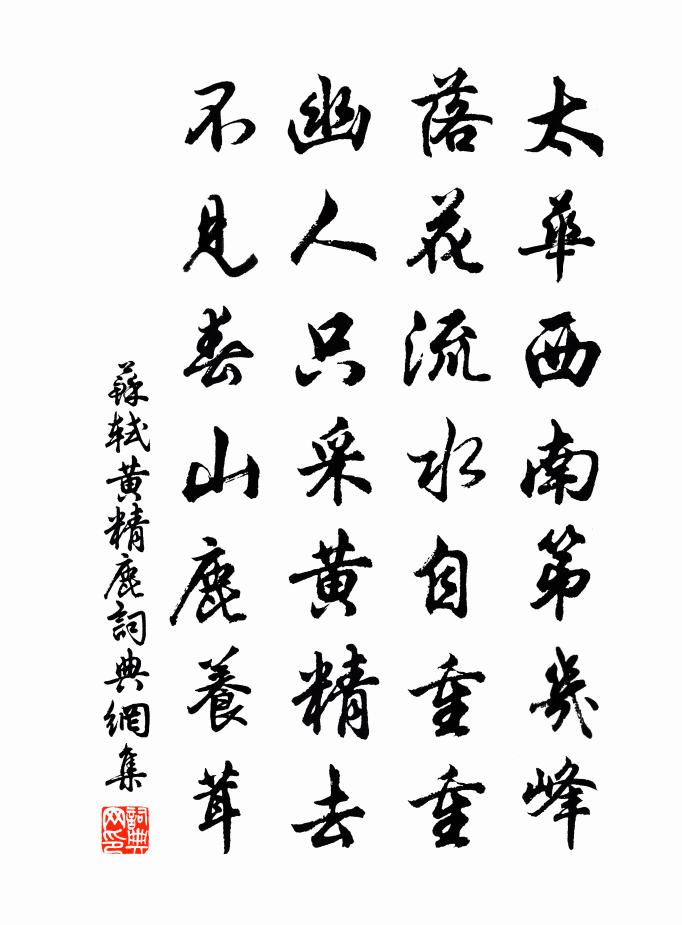 太華西南第幾峰
落花流水自重重
幽人只采黃精去
不見春山鹿養茸
蘇軾黃精鹿詞典網集
詞典网印